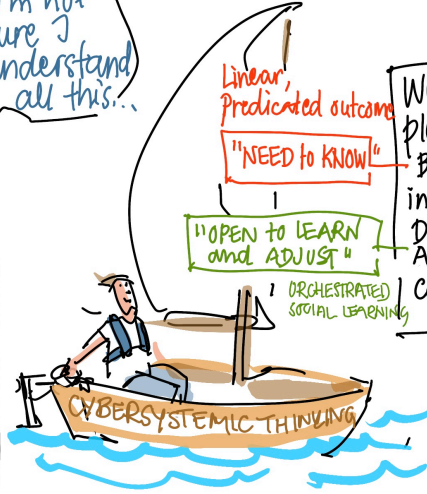 I'm not
ure I
nderstand
all this...
Linear,
Predicated outcome
"NEED to KNOW"
"OPEN to LEARN
and ADJUST"
ORCHESTRATED
SOCIAL LEARNING
CYBERSYSTEMIC THINKING
W
pl
in
D
A
C